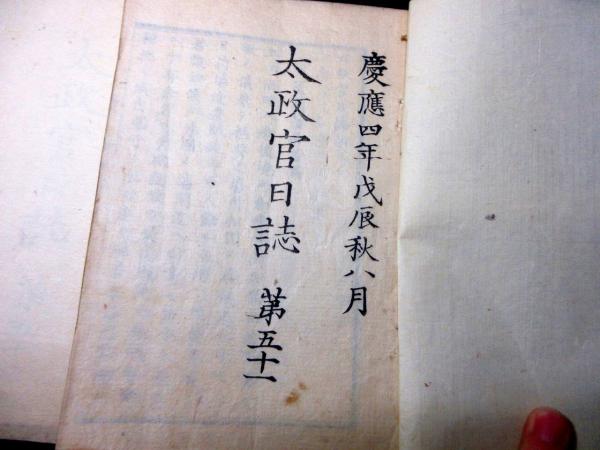 慶應四年戊辰秋八月
太政官日誌 第五十一